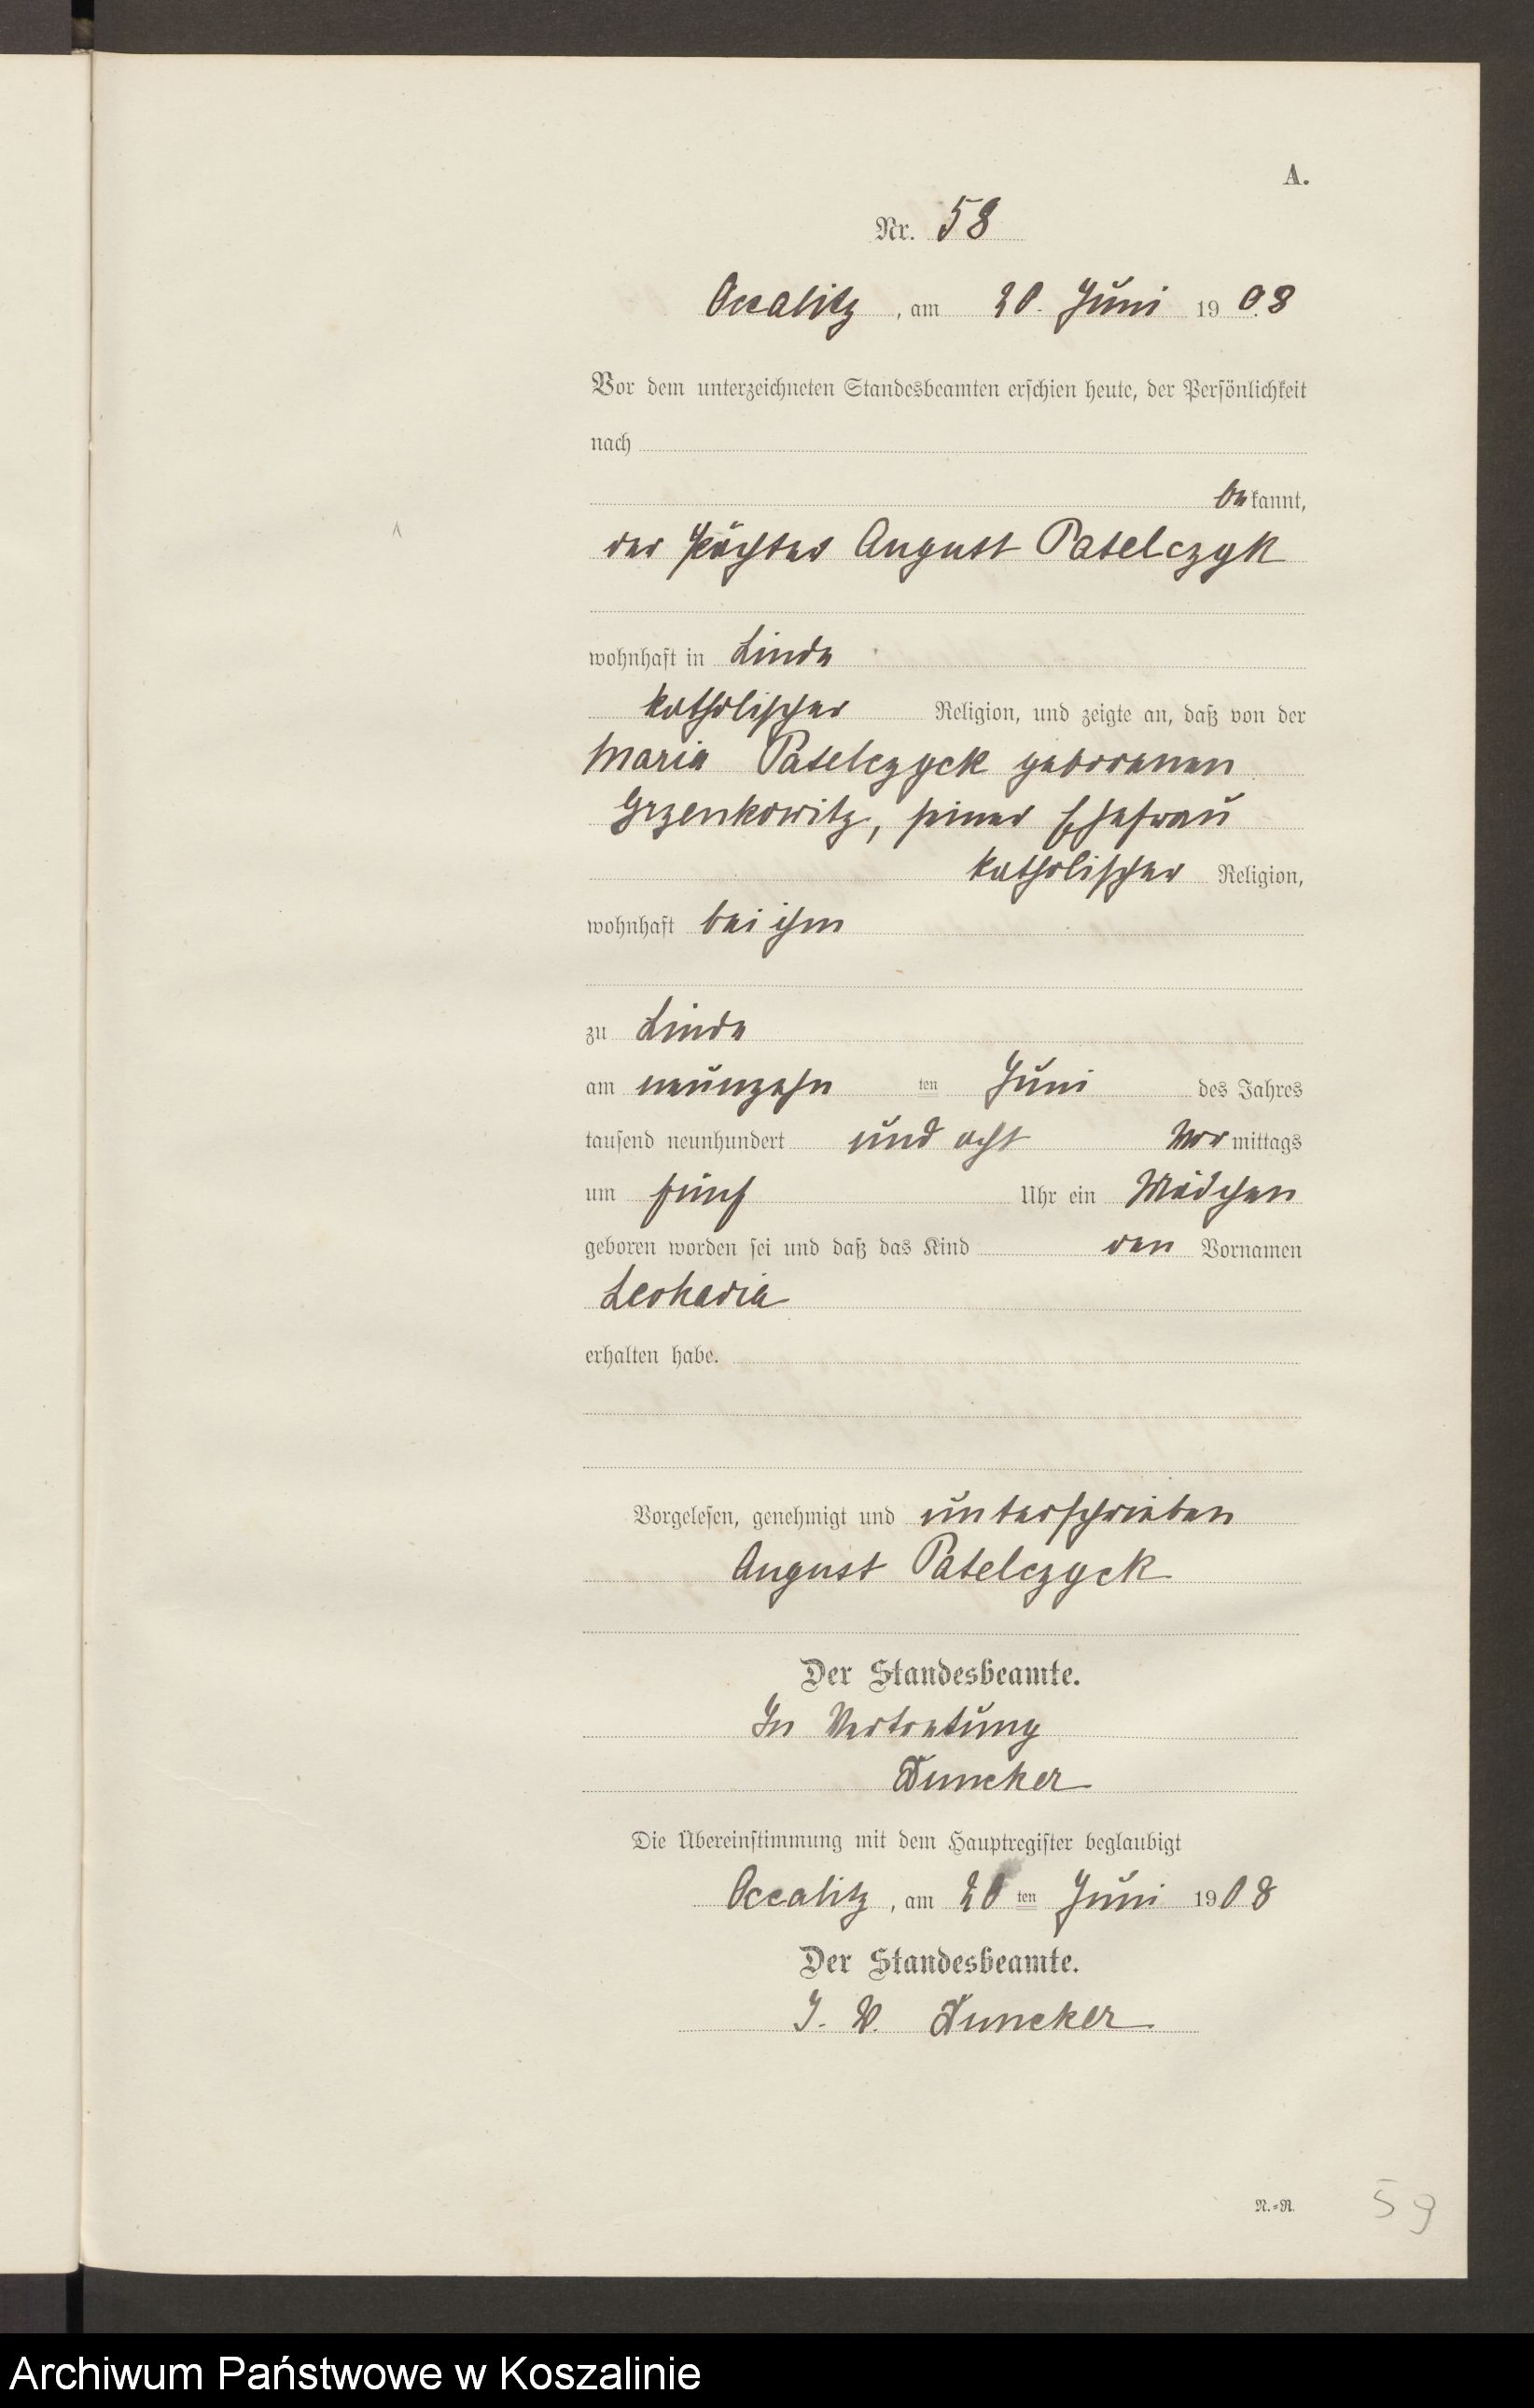 A.
Nr. 58
Occalitz, am 20. Juni 1908
Vor dem unterzeichneten Standesbeamten erschien heute, der Persönlichkeit
nach
bekannt,
der Pächter August Patelczyk
wohnhaft in Linde
katholischer Religion, und zeigte an, daß von der
Maria Patelczyck geborenen
Grzenkowitz, seiner Ehefrau
katholischer Religion,
wohnhaft bei ihm
zu Linde
am neunzehn ten Juni des Jahres
tausend neunhundert und acht Vor mittags
um fünf Uhr ein Mädchen
geboren worden sei und daß das Kind den Vornamen
Leokadia
erhalten habe.
Vorgelesen, genehmigt und unterschrieben
August Patelczyck
Der Standesbeamte.
In Vertretung
Duncker
Die Übereinstimmung mit dem Hauptregister beglaubigt
Occalitz, am 20 ten Juni 1908
Der Standesbeamte.
J. V. Duncker
N.=R.
59
Archiwum Państwowe w Koszalinie